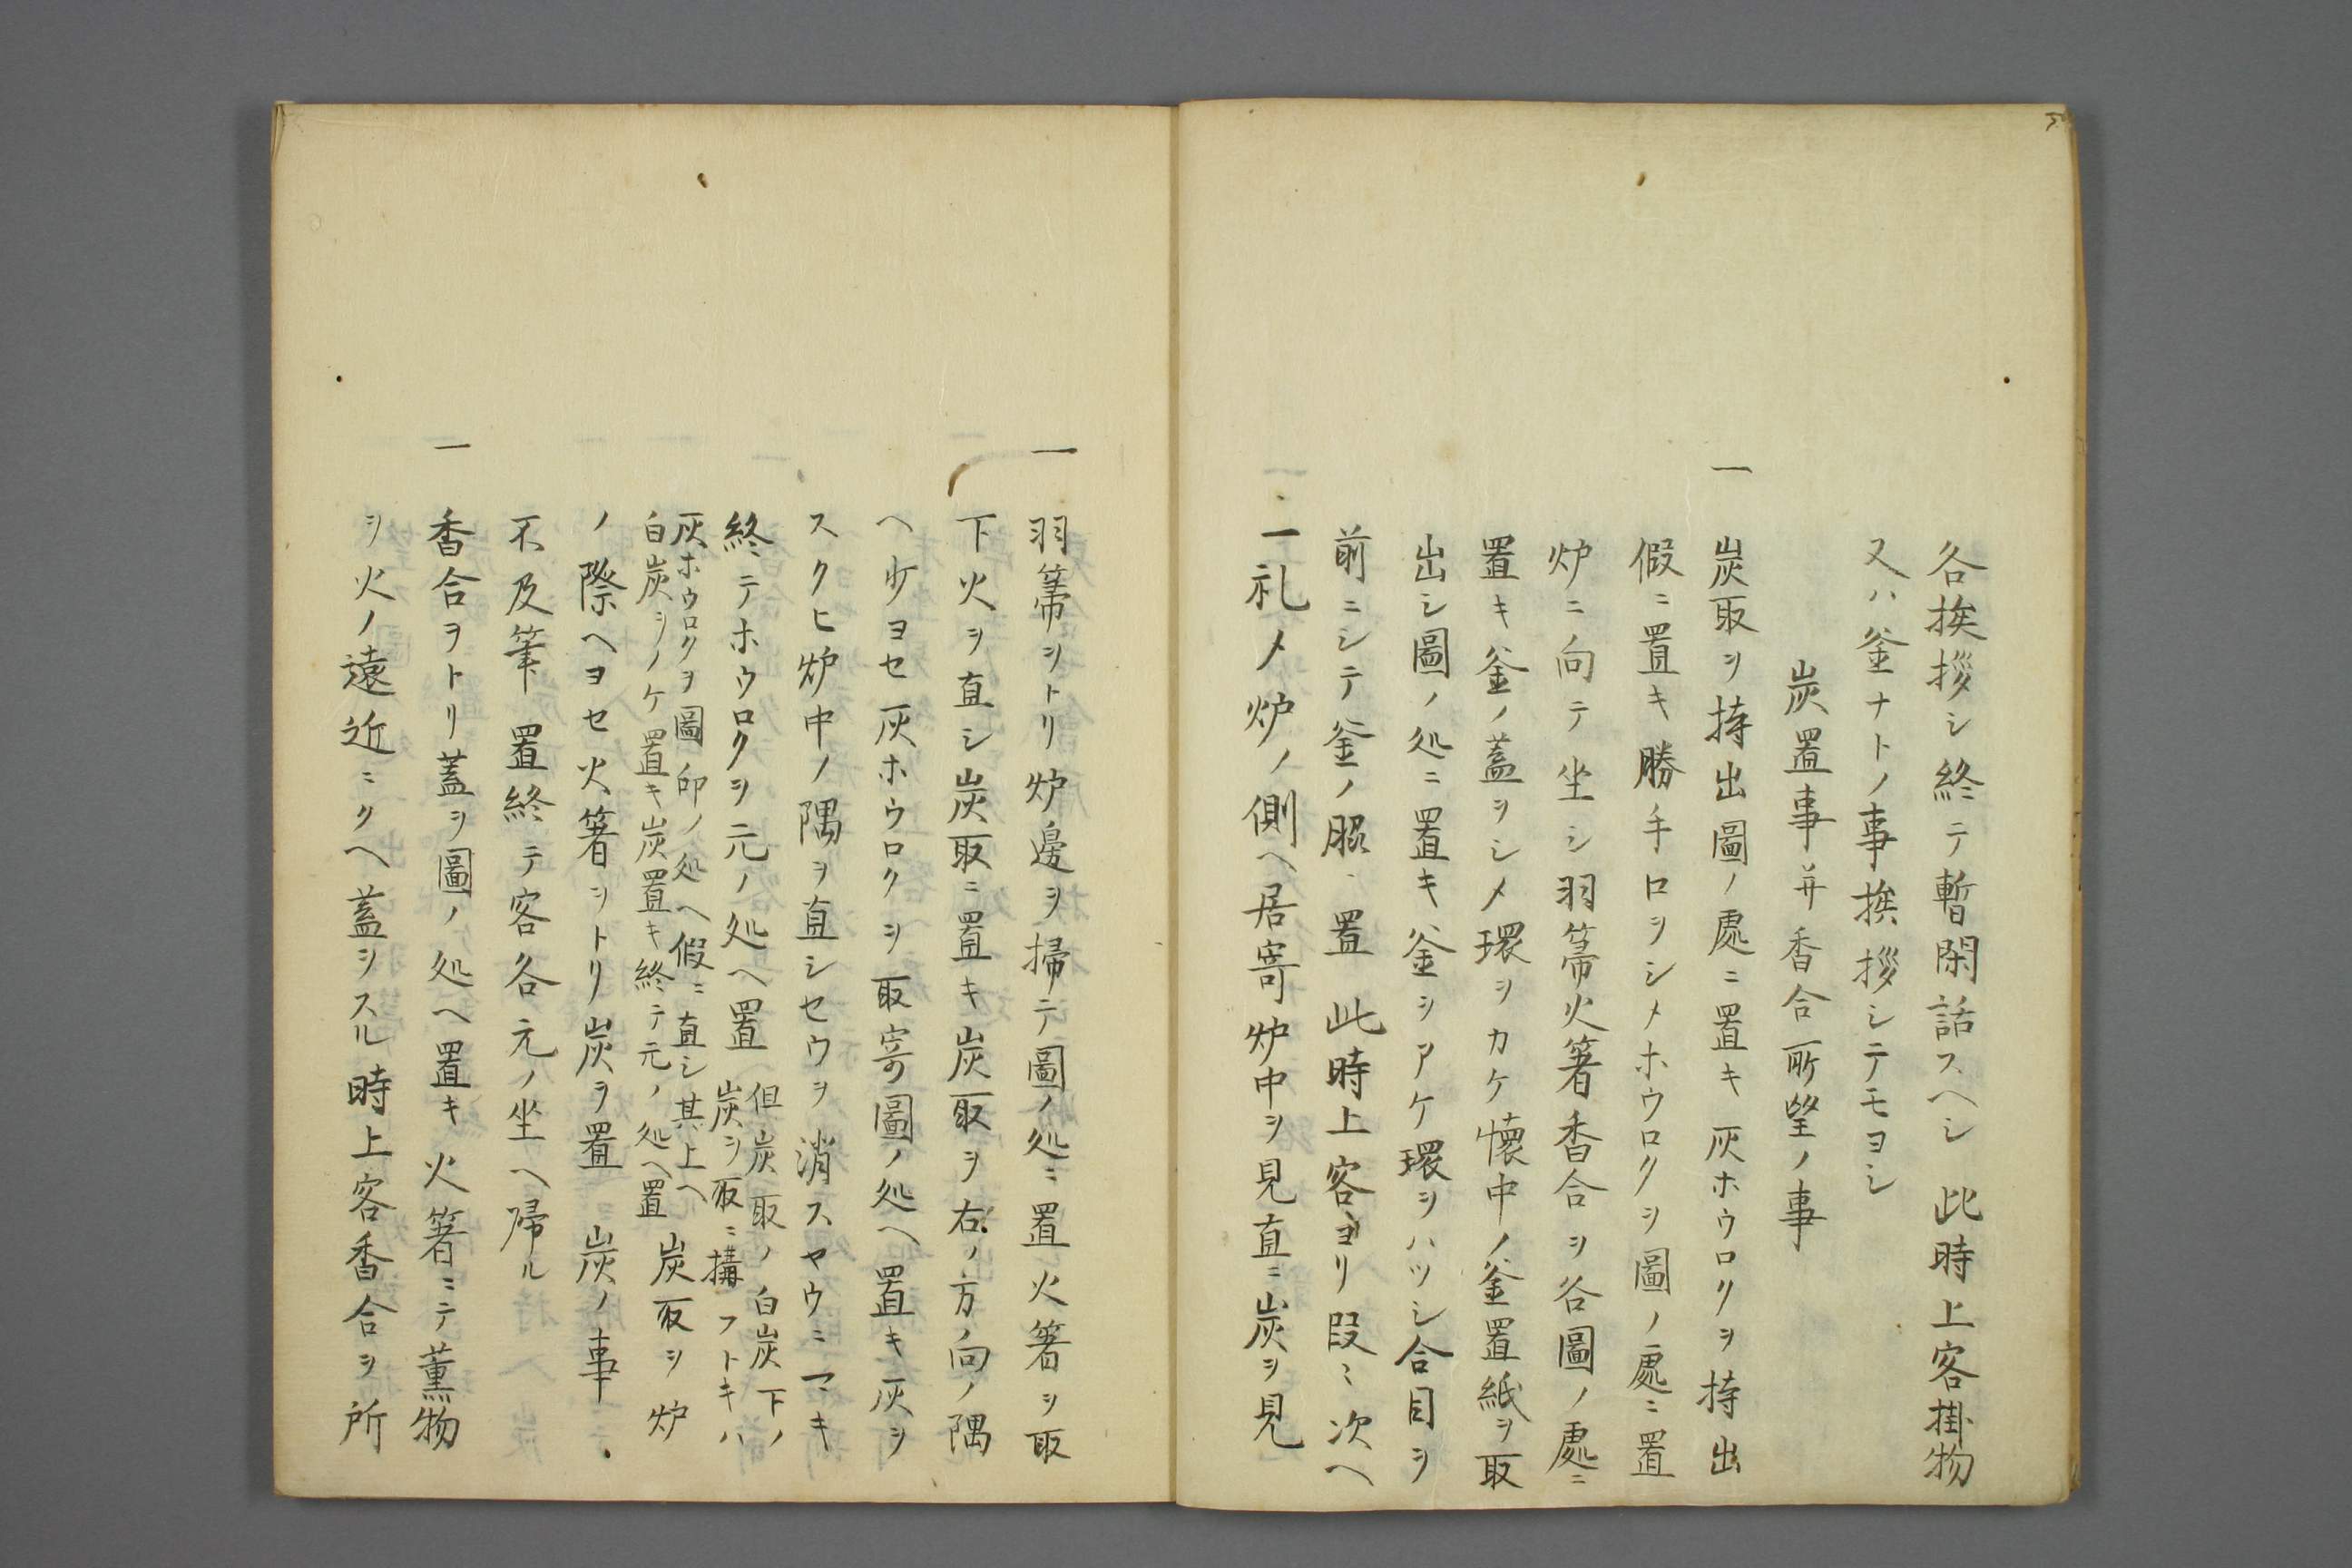 各挨拶シ終テ暫閑話スヘシ此時上客掛物
又ハ釜ナトノ事挨拶シテモヨシ
炭置事并香合所望ノ事
一 炭取ヲ持出圖ノ處ニ置キ灰ホウロクヲ持出
假ニ置キ勝手口ヲシメホウロクヲ圖ノ處ニ置
炉ニ向テ坐シ羽箒火箸香合ヲ各圖ノ處ニ
置キ釜ノ蓋ヲシメ環ヲカケ懐中ノ釜置紙ヲ取
出シ圖ノ処ニ置キ釜ヲアケ環ヲハツシ合目ヲ
前ニシテ釜ノ置此時上客ヨリ段〻次ヘ
一礼メ炉ノ側ヘ居寄炉中ヲ見直ニ炭ヲ見
一 羽箒ヲトリ炉邊ヲ掃テ圖ノ処ニ置火箸ヲ取
下火ヲ直シ炭取ニ置キ炭取ヲ右ノ方向ノ隅
ヘ少ヨセ灰ホウロクヲ取寄圖ノ処ヘ置キ灰ヲ
スクヒ炉中ノ隅ヲ直シセウヲ消スヤウニマキ
終テホウロクヲ元ノ処ヘ置 但炭取ノ白炭下ノ
炭ヲ取ニ搆フトキハ
灰ホウロクヲ圖印ノ処ヘ假ニ直シ其上ヘ
白炭ヲノケ置キ炭置キ終テ元ノ処ヘ置 炭取ヲ炉
ノ際ヘヨセ火箸ヲトリ炭ヲ置炭ノ事
不及筆置終テ客各元ノ坐ヘ帰ル
一 香合ヲトリ蓋ヲ圖ノ処ヘ置キ火箸ニテ薫物
ヲ火ノ遠近ニクヘ蓋ヲスル時上客香合ヲ所